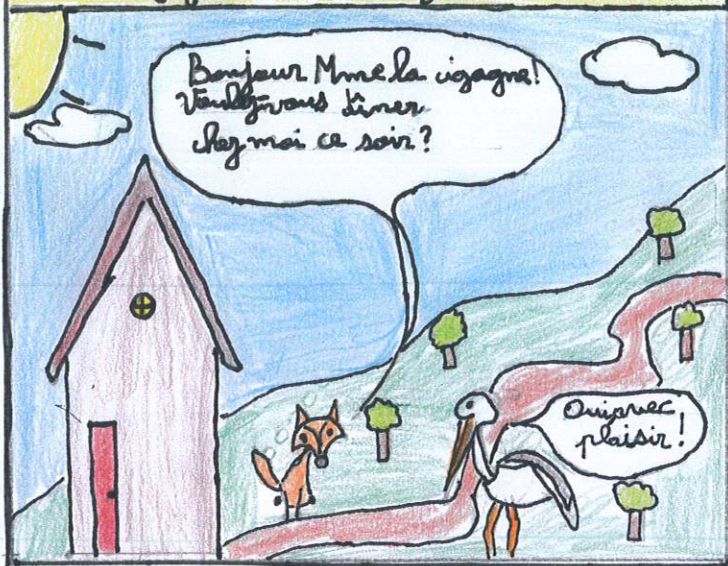 Bonjour Mme la cigagne!
Voulez-vous dîner
chez moi ce soir?
Oui avec
plaisir!